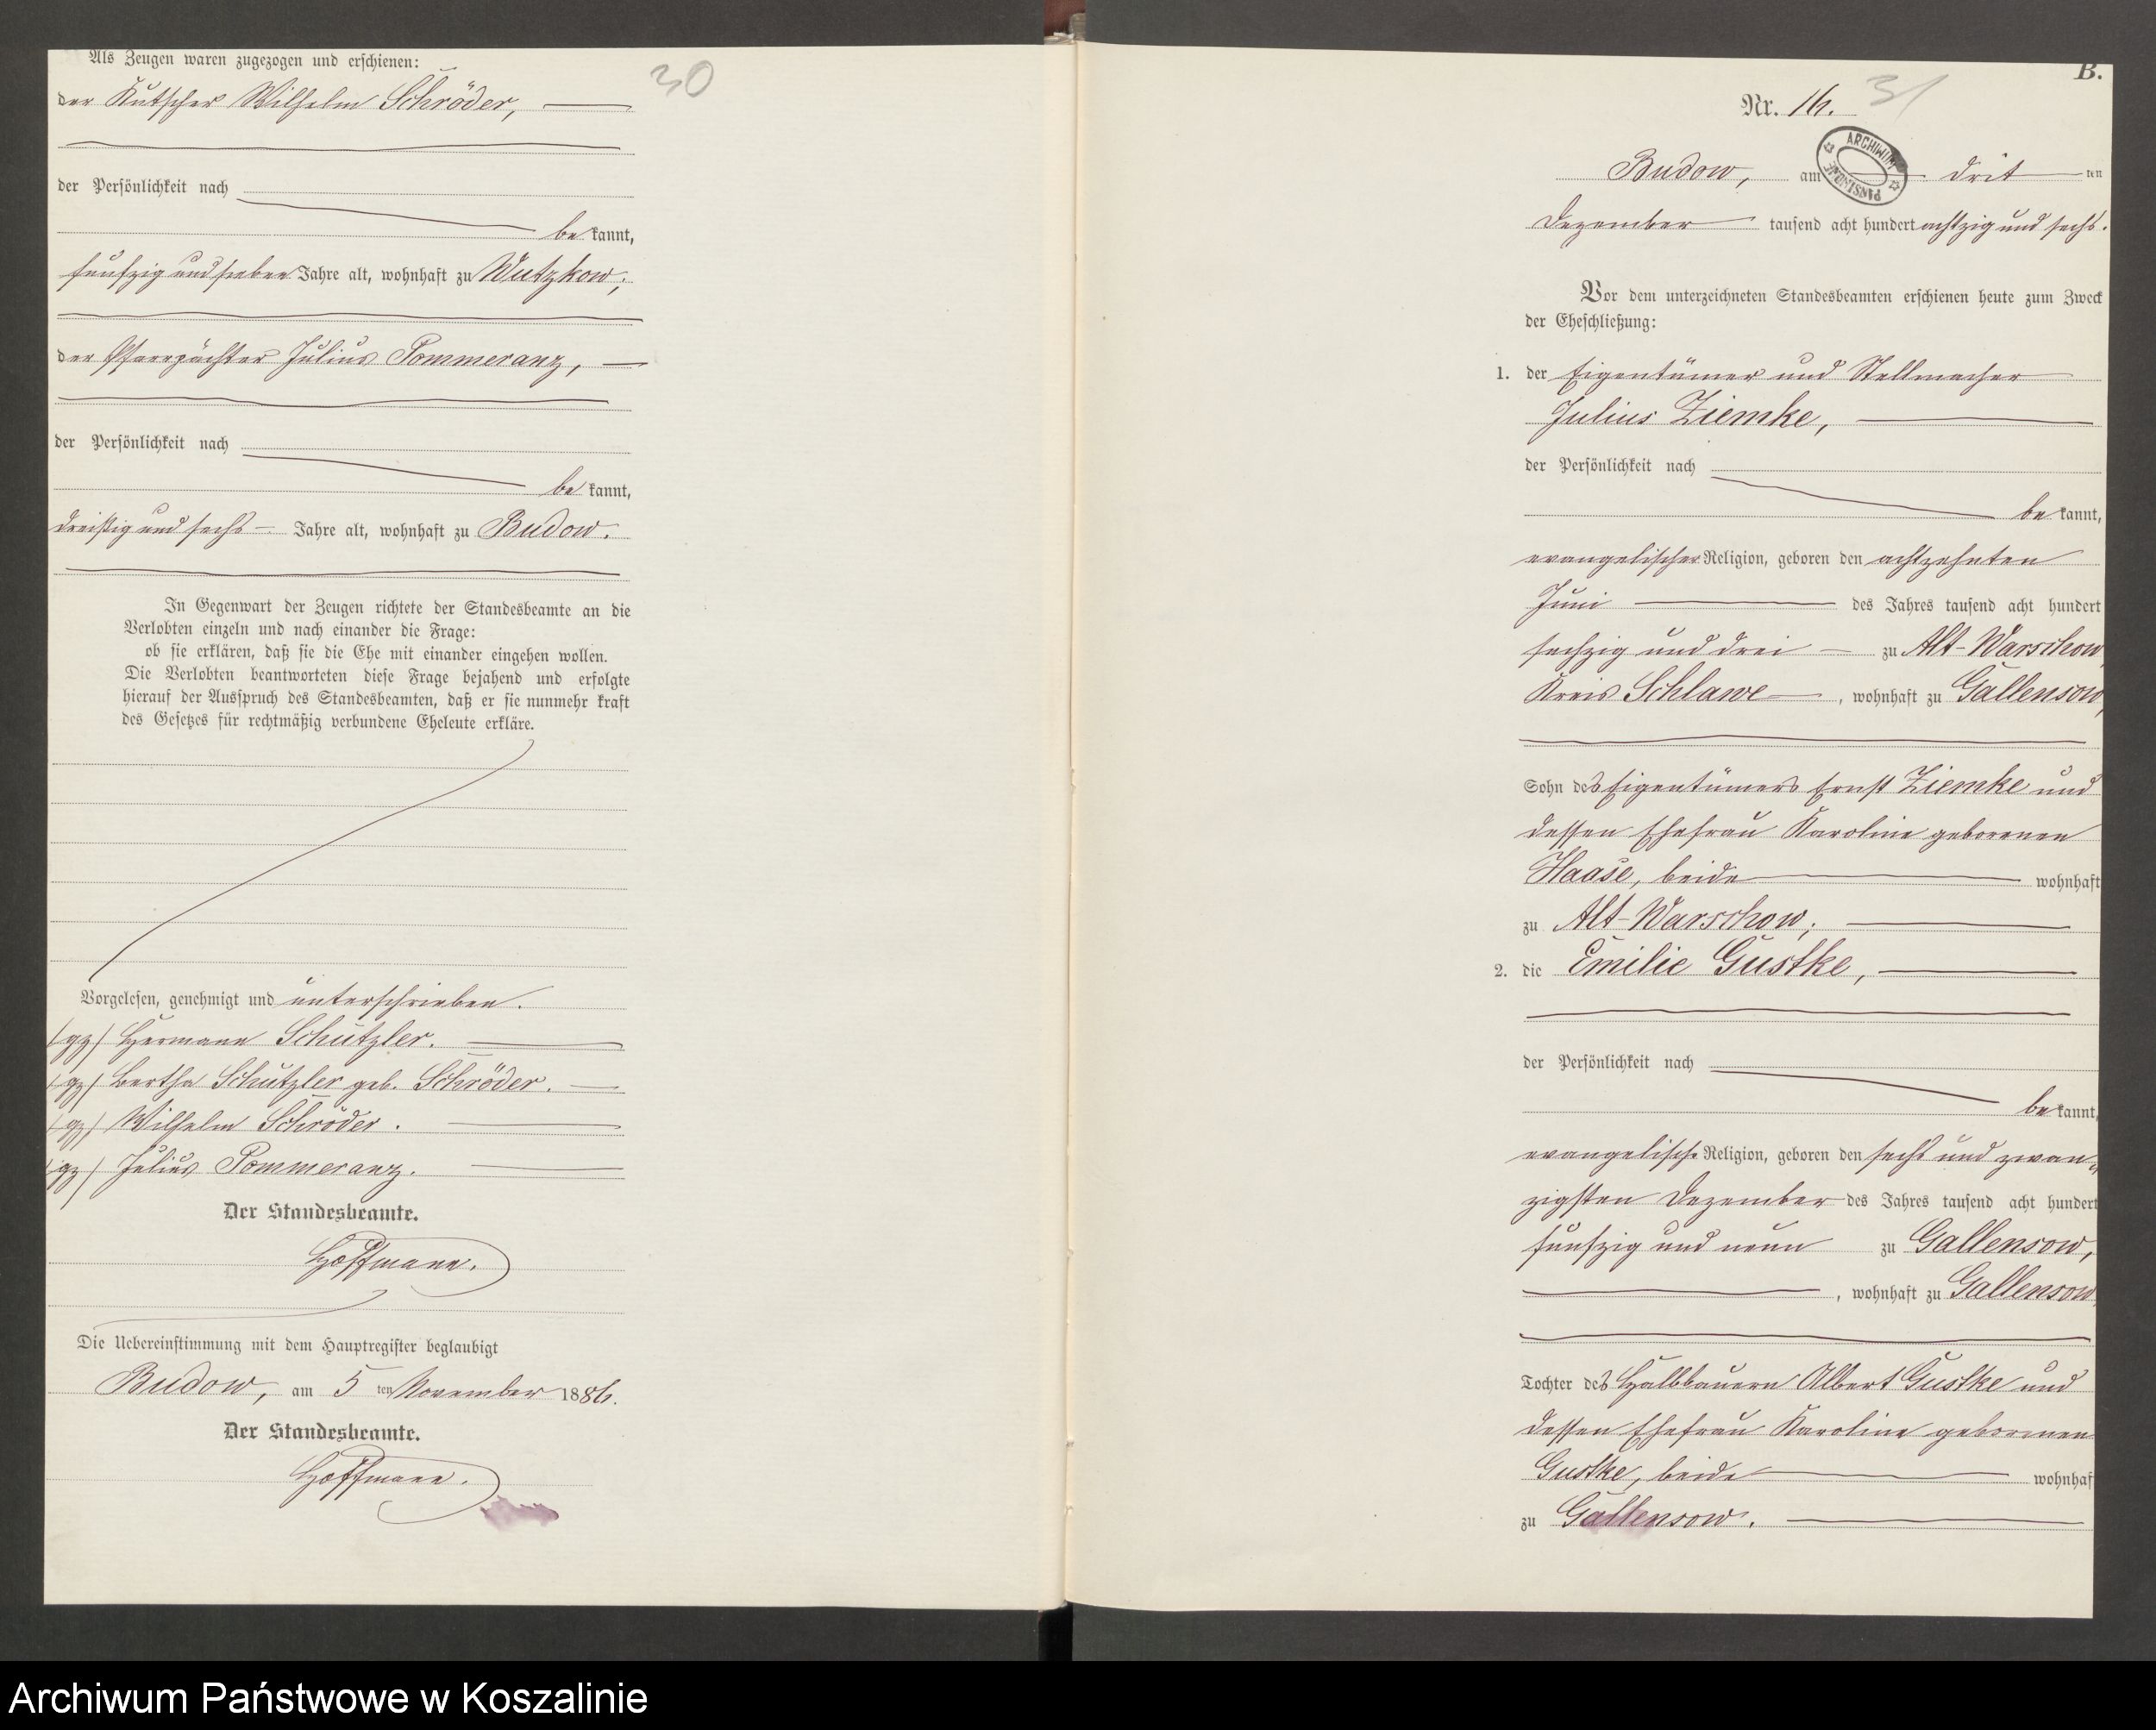 Als Zeugen waren zugezogen und erschienen:
der Kutscher Wilhelm Schröder,
der Persönlichkeit nach
be kannt,
fünfzig und sieben Jahre alt, wohnhaft zu Wutzkow;
der Pfarrpächter Julius Pommeranz,
der Persönlichkeit nach
be kannt,
dreißig und sechs Jahre alt, wohnhaft zu Budow.
In Gegenwart der Zeugen richtete der Standesbeamte an die
Verlobten einzeln und nach einander die Frage:
ob sie erklären, daß sie die Ehe mit einander eingehen wollen.
Die Verlobten beantworteten diese Frage bejahend und erfolgte
hierauf der Ausspruch des Standesbeamten, daß er sie nunmehr kraft
des Gesetzes für rechtmäßig verbundene Eheleute erkläre.
Vorgelesen, genehmigt und unterschrieben.
(gz) Hermann Schützler.
(gz) Bertha Schützler geb. Schröder.
(gz) Wilhelm Schröder.
(gz) Julius Pommeranz.
Der Standesbeamte.
Hoffmann.
Die Uebereinstimmung mit dem Hauptregister beglaubigt
Budow, am 5 ten November 1886.
Der Standesbeamte.
Hoffmann.
30
B.
Nr. 16.
31
ARCHIWUM PAŃSTWOWE
Budow, am drit ten
Dezember tausend acht hundert achtzig und sechs.
Vor dem unterzeichneten Standesbeamten erschienen heute zum Zweck
der Eheschließung:
1. der Eigentümer und Stellmacher
Julius Ziemke,
der Persönlichkeit nach
be kannt,
evangelischer Religion, geboren den achtzehnten
Juni des Jahres tausend acht hundert
sechzig und drei zu Alt-Warschow,
Kreis Schlawe, wohnhaft zu Gallensow,
Sohn des Eigentümers Ernst Ziemke und
dessen Ehefrau Karoline geborenen
Haase, beide wohnhaft
zu Alt-Warschow;
2. die Emilie Gustke,
der Persönlichkeit nach
be kannt,
evangelischer Religion, geboren den sechs und zwan-
zigsten Dezember des Jahres tausend acht hundert
fünfzig und neun zu Gallensow,
, wohnhaft zu Gallensow,
Tochter des Halbbauern Albert Gustke und
dessen Ehefrau Karoline geborenen
Gustke, beide wohnhaf
zu Gallensow.
Archiwum Państwowe w Koszalinie